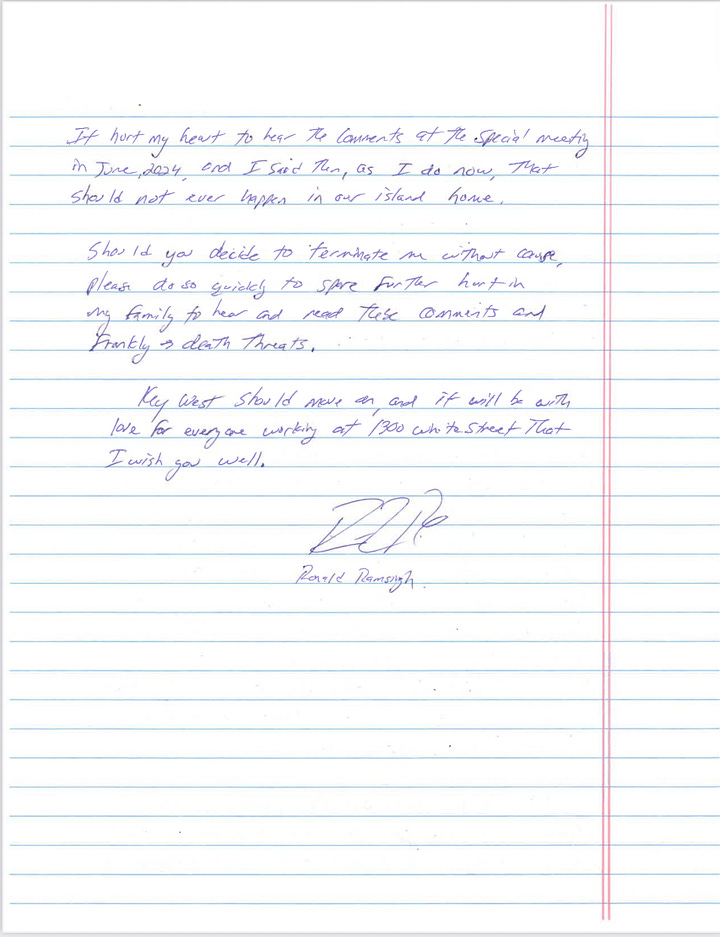 It hurt my heart to hear the comments at the special meeting
in June, 2024, and I said then, as I do now, that
should not ever happen in our island home.
Should you decide to terminate me without cause,
please do so quickly to spare further hurt in
my family to hear and read these comments and
frankly → death threats.
Key West should move on, and it will be with
love for everyone working at 1300 White Street that
I wish you well.
Ronald Ramsingh